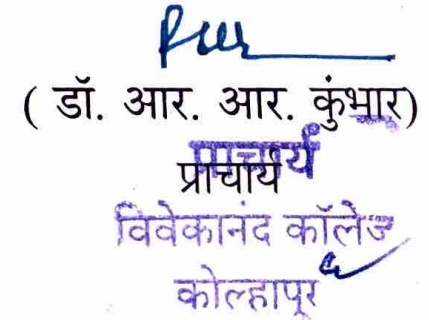 ( डॉ. आर. आर. कुंभार)
प्राचार्य
प्राचार्य
विवेकानंद कॉलेज
कोल्हापूर